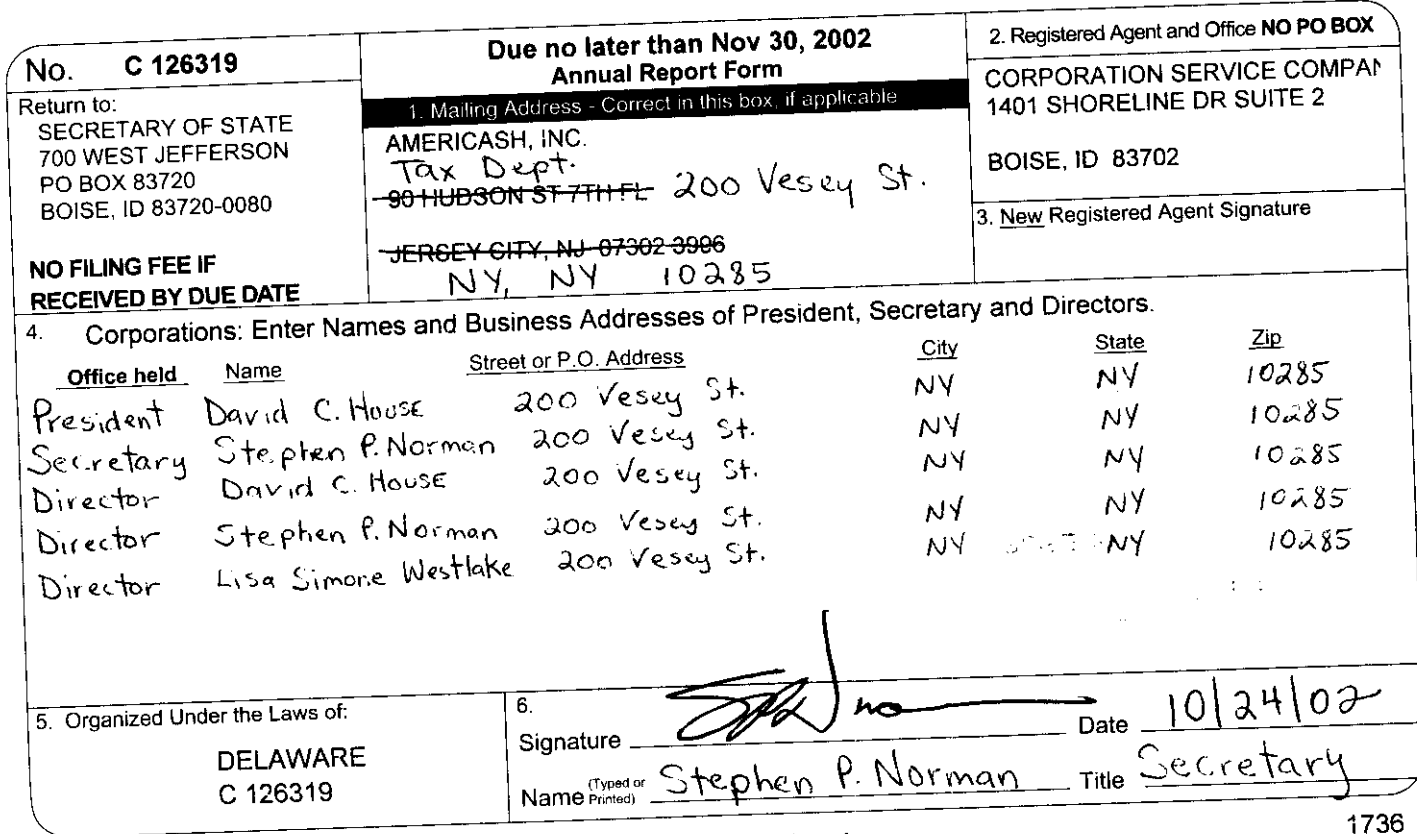 No. C 126319
Return to:
SECRETARY OF STATE
700 WEST JEFFERSON
PO BOX 83720
BOISE, ID 83720-0080
NO FILING FEE IF
RECEIVED BY DUE DATE
Due no later than Nov 30, 2002
Annual Report Form
1. Mailing Address - Correct in this box, if applicable
AMERICASH, INC.
Tax Dept.
90 HUDSON ST 7TH FL 200 Vesey St.
JERSEY CITY, NJ 07302 3996
NY, NY 10285
2. Registered Agent and Office NO PO BOX
CORPORATION SERVICE COMPAN
1401 SHORELINE DR SUITE 2
BOISE, ID 83702
3. New Registered Agent Signature
4. Corporations: Enter Names and Business Addresses of President, Secretary and Directors.
Office held Name Street or P.O. Address City State Zip
President David C. House 200 Vesey St. NY NY 10285
Secretary Stephen P. Norman 200 Vesey St. NY NY 10285
Director David C. House 200 Vesey St. NY NY 10285
Director Stephen P. Norman 200 Vesey St. NY NY 10285
Director Lisa Simone Westlake 200 Vesey St. NY NY 10285
5. Organized Under the Laws of:
DELAWARE
C 126319
6.
Signature Date 10/24/02
Name (Typed or Printed) Stephen P. Norman Title Secretary
1736